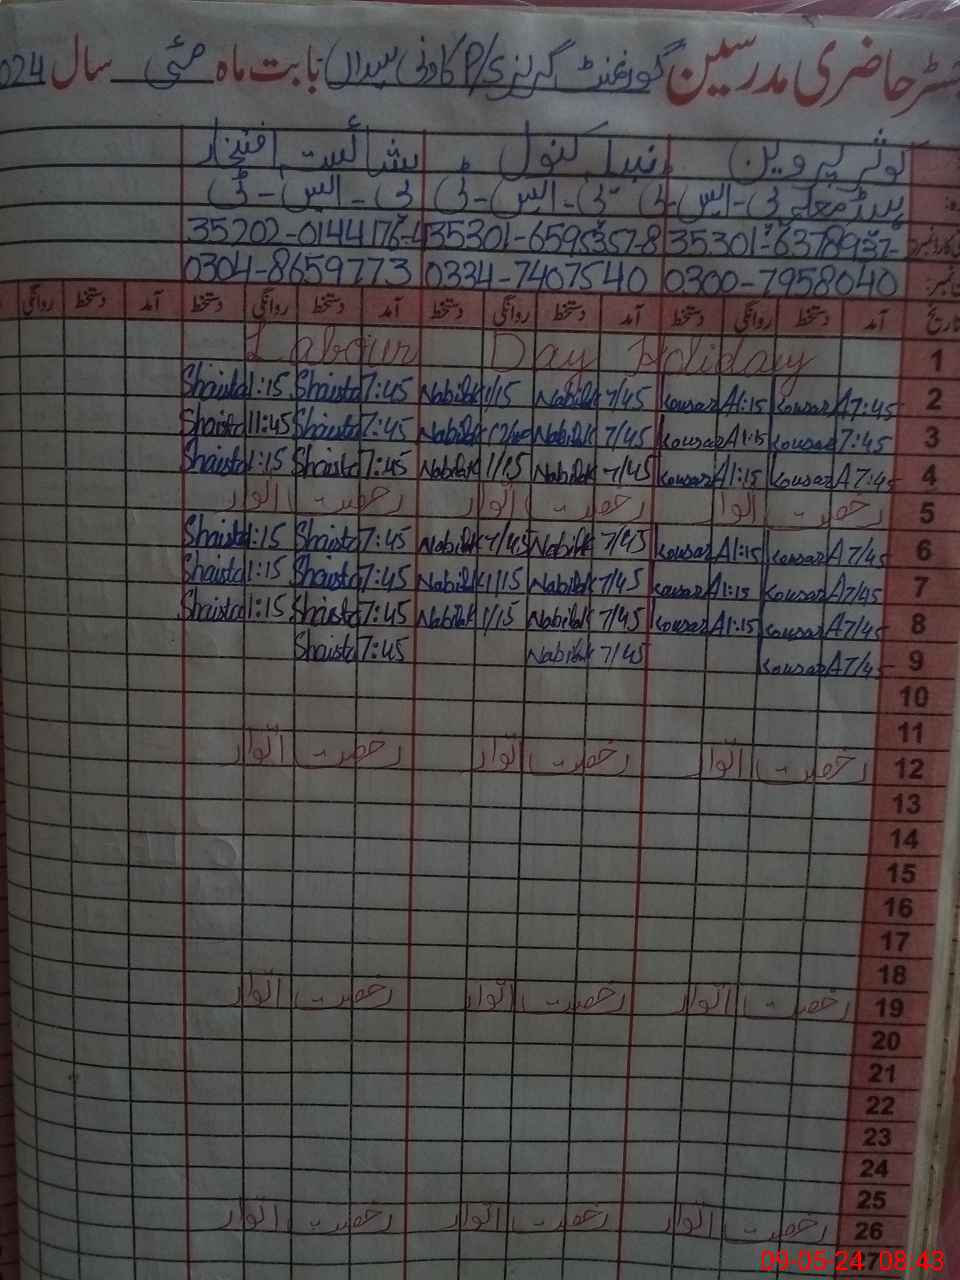 رجسٹر حاضری مدرسین گورنمنٹ گرلز P/S بابت ماہ مئی سال 2024
کوثر پروین نبیلہ کنول شائستہ افتخار
ہیڈ معلمہ پی-ایس-ٹی پی-ایس-ٹی پی-ایس-ٹی
35301-6378957- 35301-6595357-8 35202-0144176-4
0300-7958040 0334-7407540 0304-8659773
تاریخ آمد دستخط روانگی دستخط آمد دستخط روانگی دستخط آمد دستخط روانگی دستخط آمد دستخط روانگی
1 Labour Day Holiday
2 7:45 Kousar A 1:15 Kousar A 7/45 Nabilak 1/15 Nabilak 7:45 Shaista 1:15 Shaista
3 7:45 Kousar 1:15 Kousar A 7/45 Nabilak Nabilak 7:45 Shaista 11:45 Shaista
4 7:45 Kousar A 1:15 Kousar A 7/45 Nabilak 1/15 Nabilak 7:45 Shaista 1:15 Shaista
5 رخصت اتوار رخصت اتوار رخصت اتوار
6 7/45 Kousar A 1:15 Kousar A 7/45 Nabilak 7/45 Nabilak 7:45 Shaista 1:15 Shaista
7 7/45 Kousar A 1:15 Kousar A 7/45 Nabilak 1/15 Nabilak 7:45 Shaista 1:15 Shaista
8 7/45 Kousar A 1:15 Kousar A 7/45 Nabilak 1/15 Nabilak 7:45 Shaista 1:15 Shaista
9 7/45 Kousar A 7/45 Nabilak 7:45 Shaista
10
11
12 رخصت اتوار رخصت اتوار رخصت اتوار
13
14
15
16
17
18
19 رخصت اتوار رخصت اتوار رخصت اتوار
20
21
22
23
24
25
26 رخصت اتوار رخصت اتوار رخصت اتوار
09-05-24 08:43